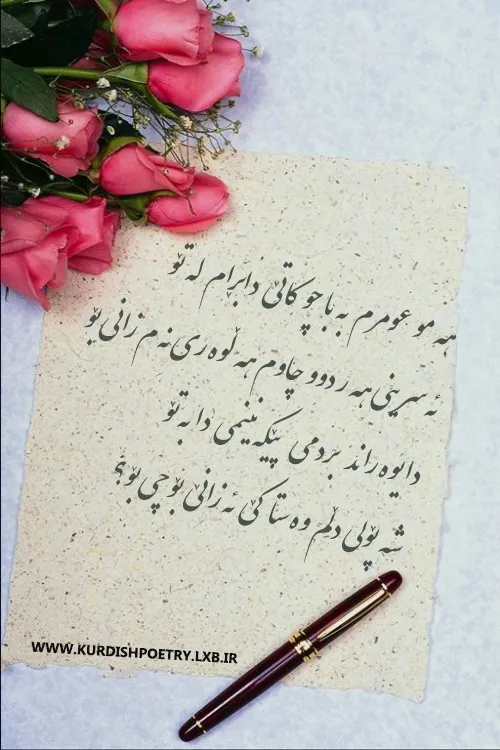 هه مو عومرم به با چو کاتێ دابڕام له تۆ
ئه سرینی هه ر دوو چاوم هه ڵوه ری نه م زانی بۆ
دایوه ڕاند بردمی پێکه نینمی دا به تۆ
شه پۆلی دڵم وه ستا کێ ئه زانێ بۆچی بۆ؟
WWW.KURDISHPOETRY.LXB.IR